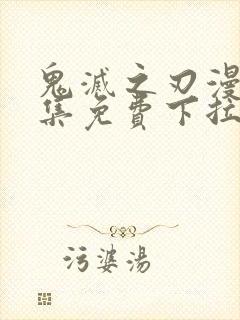 鬼滅之刃漫
集免費下拉
污婆湯